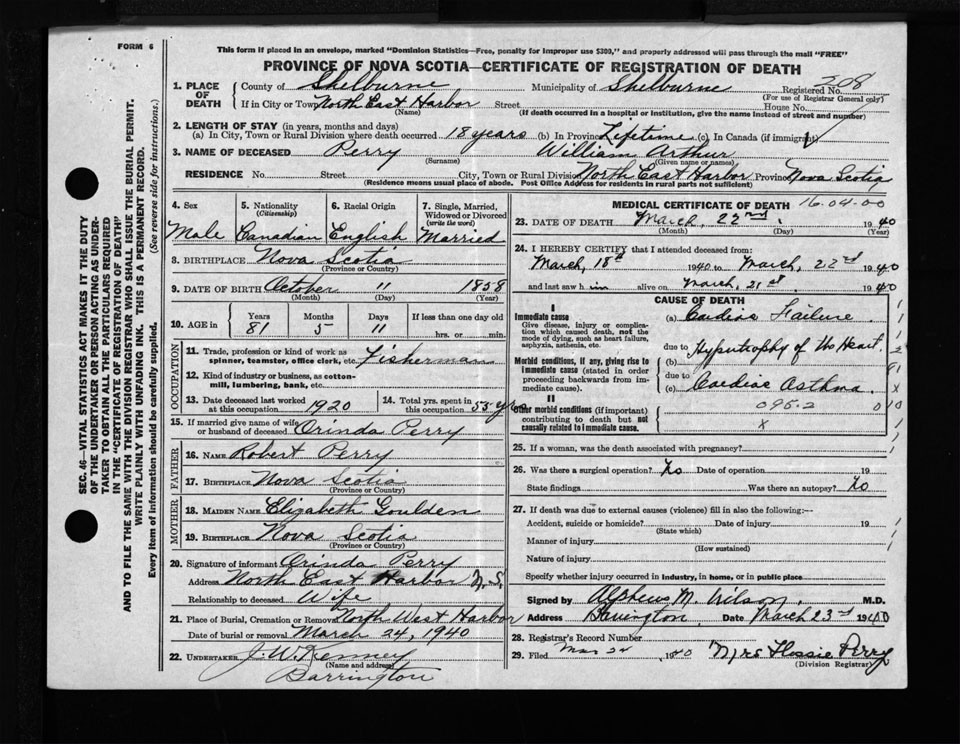 FORM 6
This form if placed in an envelope, marked "Dominion Statistics—Free, penalty for improper use $300," and properly addressed will pass through the mail "FREE"
PROVINCE OF NOVA SCOTIA—CERTIFICATE OF REGISTRATION OF DEATH
SEC. 46—VITAL STATISTICS ACT MAKES IT THE DUTY
OF THE UNDERTAKER OR PERSON ACTING AS UNDER-
TAKER TO OBTAIN ALL THE PARTICULARS REQUIRED
IN THE "CERTIFICATE OF REGISTRATION OF DEATH"
AND TO FILE THE SAME WITH THE DIVISION REGISTRAR WHO SHALL ISSUE THE BURIAL PERMIT.
WRITE PLAINLY WITH UNFADING INK. THIS IS A PERMANENT RECORD.
Every item of information should be carefully supplied. (See reverse side for instructions.)
1. PLACE OF DEATH County of Shelburne Municipality of Shelburne Registered No. 308
(For use of Registrar General only)
If in City or Town North East Harbor Street House No.
(Name) (If death occurred in a hospital or institution, give the name instead of street and number)
2. LENGTH OF STAY (in years, months and days)
(a) In City, Town or Rural Division where death occurred 18 years (b) In Province Lifetime (c) In Canada (if immigrant)
3. NAME OF DECEASED Perry William Arthur
(Surname) (Given name or names)
RESIDENCE No. Street City, Town or Rural Division North East Harbor Province Nova Scotia
(Residence means usual place of abode. Post Office Address for residents in rural parts not sufficient)
4. Sex 5. Nationality (Citizenship) 6. Racial Origin 7. Single, Married, Widowed or Divorced (write the word)
Male Canadian English Married
8. BIRTHPLACE Nova Scotia
(Province or Country)
9. DATE OF BIRTH October 11 1858
(Month) (Day) (Year)
10. AGE in Years Months Days If less than one day old
81 5 11 hrs. or min.
OCCUPATION
11. Trade, profession or kind of work as
spinner, teamster, office clerk, etc. Fisherman
12. Kind of industry or business, as cotton-
mill, lumbering, bank, etc.
13. Date deceased last worked
at this occupation 1920
14. Total yrs. spent in
this occupation 55 yrs
15. If married give name of wife
or husband of deceased Orinda Perry
FATHER
16. NAME Robert Perry
17. BIRTHPLACE Nova Scotia
(Province or Country)
MOTHER
18. MAIDEN NAME Elizabeth Goulden
19. BIRTHPLACE Nova Scotia
(Province or Country)
20. Signature of informant Orinda Perry
Address North East Harbor N.S.
Relationship to deceased Wife
21. Place of Burial, Cremation or Removal North West Harbor
Date of burial or removal March 24, 1940
22. UNDERTAKER J. W. Kenney
(Name and address)
Barrington
MEDICAL CERTIFICATE OF DEATH 16.04.00
23. DATE OF DEATH March, 22nd, 1940
(Month) (Day) (Year)
24. I HEREBY CERTIFY that I attended deceased from:
March, 18th 1940 to March, 22nd 1940
and last saw him alive on March, 21st 1940
CAUSE OF DEATH
I
Immediate cause
Give disease, injury or complica-
tion which caused death, not the
mode of dying, such as heart failure,
asphyxia, asthenia, etc.
(a) Cardiac Failure
due to Hypertrophy of the Heart.
Morbid conditions, if any, giving rise to
immediate cause (stated in order
proceeding backwards from im-
mediate cause).
(b)
due to
(c) Cardiac Asthma
II
Other morbid conditions (if important)
contributing to death but not
causally related to immediate cause.
095.2
x
25. If a woman, was the death associated with pregnancy?
26. Was there a surgical operation? No Date of operation 19
State findings Was there an autopsy? No
27. If death was due to external causes (violence) fill in also the following:—
Accident, suicide or homicide? Date of injury 19
(State which)
Manner of injury
(How sustained)
Nature of injury
Specify whether injury occurred in industry, in home, or in public place
Signed by Alpheus M. Wilson M.D.
Address Barrington Date March 23rd 1940
28. Registrar's Record Number
29. Filed Mar 24 1940 Mrs Flossie Perry
(Division Registrar)